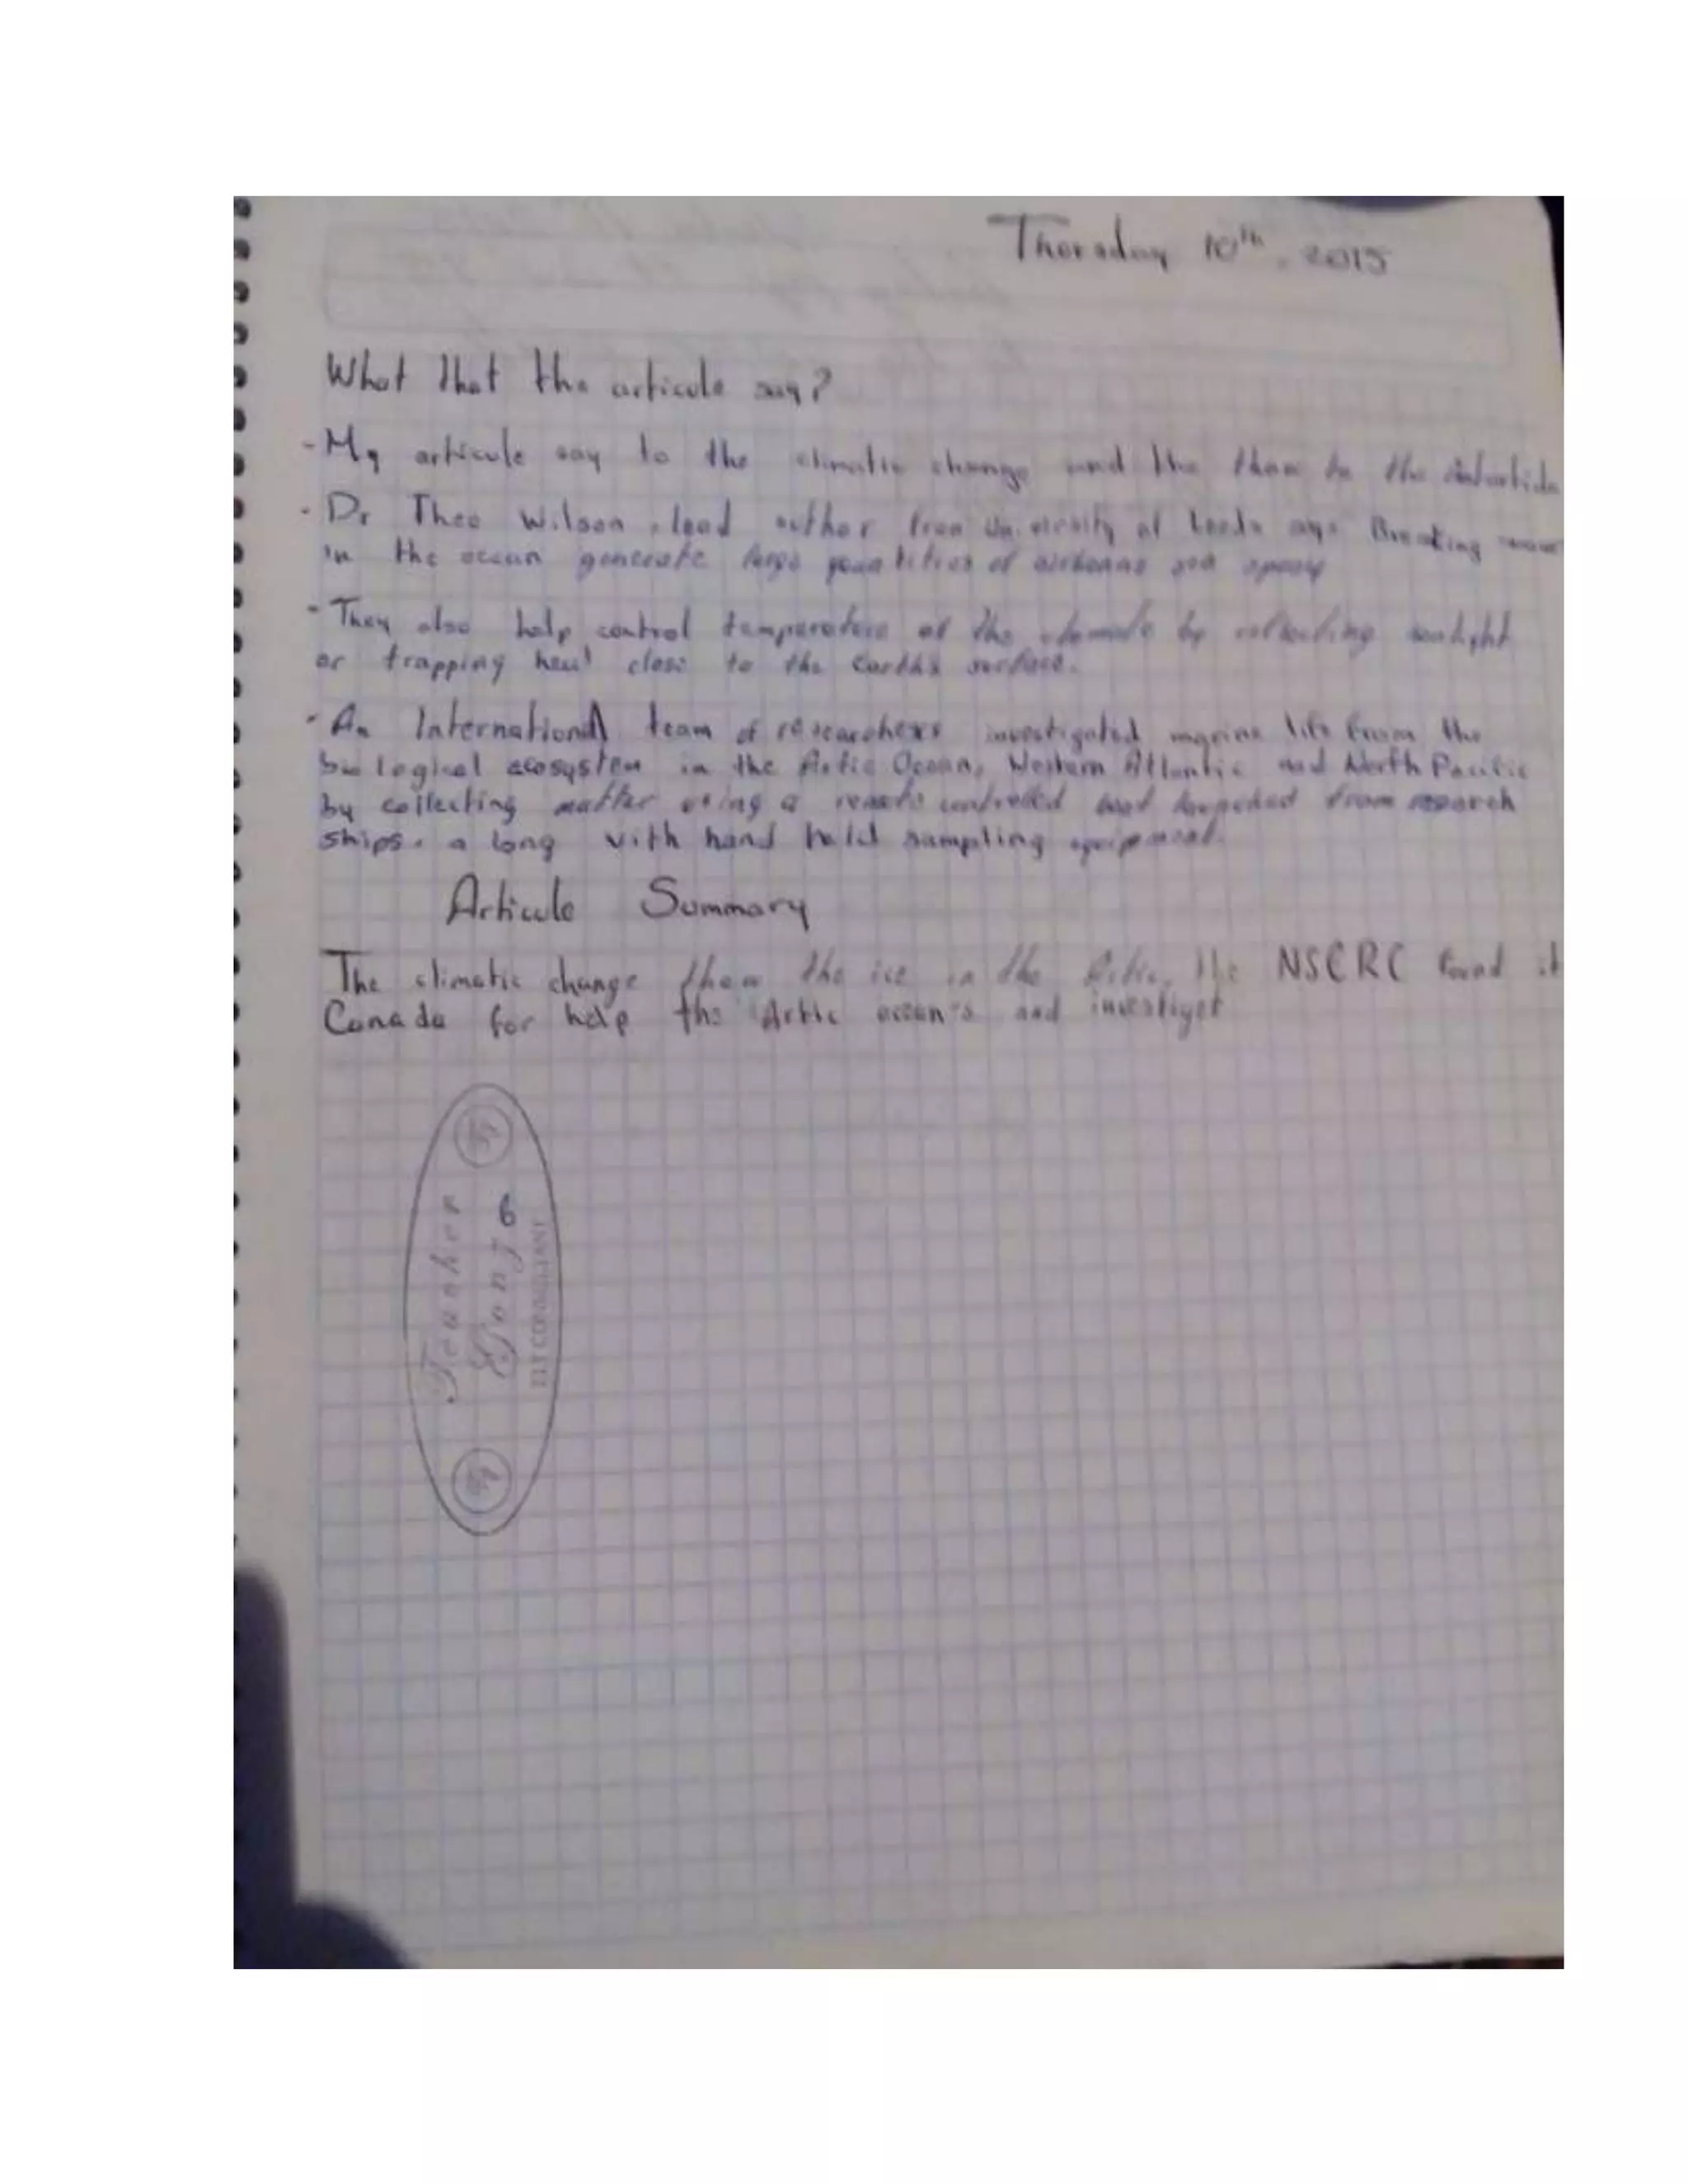 Thorsday 10th, 2015
What that the articule say?
- My articule say to the climatic change and the thaw to the
- Dr Theo Wilson, lead author from University of Leeds says Breaking waves
in the ocean generate large quantities of airbonne sea spray
- They also help control temperature of the by reflecting sunlight
or trapping heat close to the Earth's surface.
- An International team of researchers investigated marine life from the
biological ecosystem in the Artic Ocean, Western Atlantic and North Pacific
by collecting matter using a remote controlled boat launched from research
ships. a long with hand held sampling equipment.
Articule Summary
The climatic change thaw the ice in the Artic, the NSCRC found it
Canada for help the Artic ocean's and investiget
Teacher
Gonz
6
ELT CONSULTANT